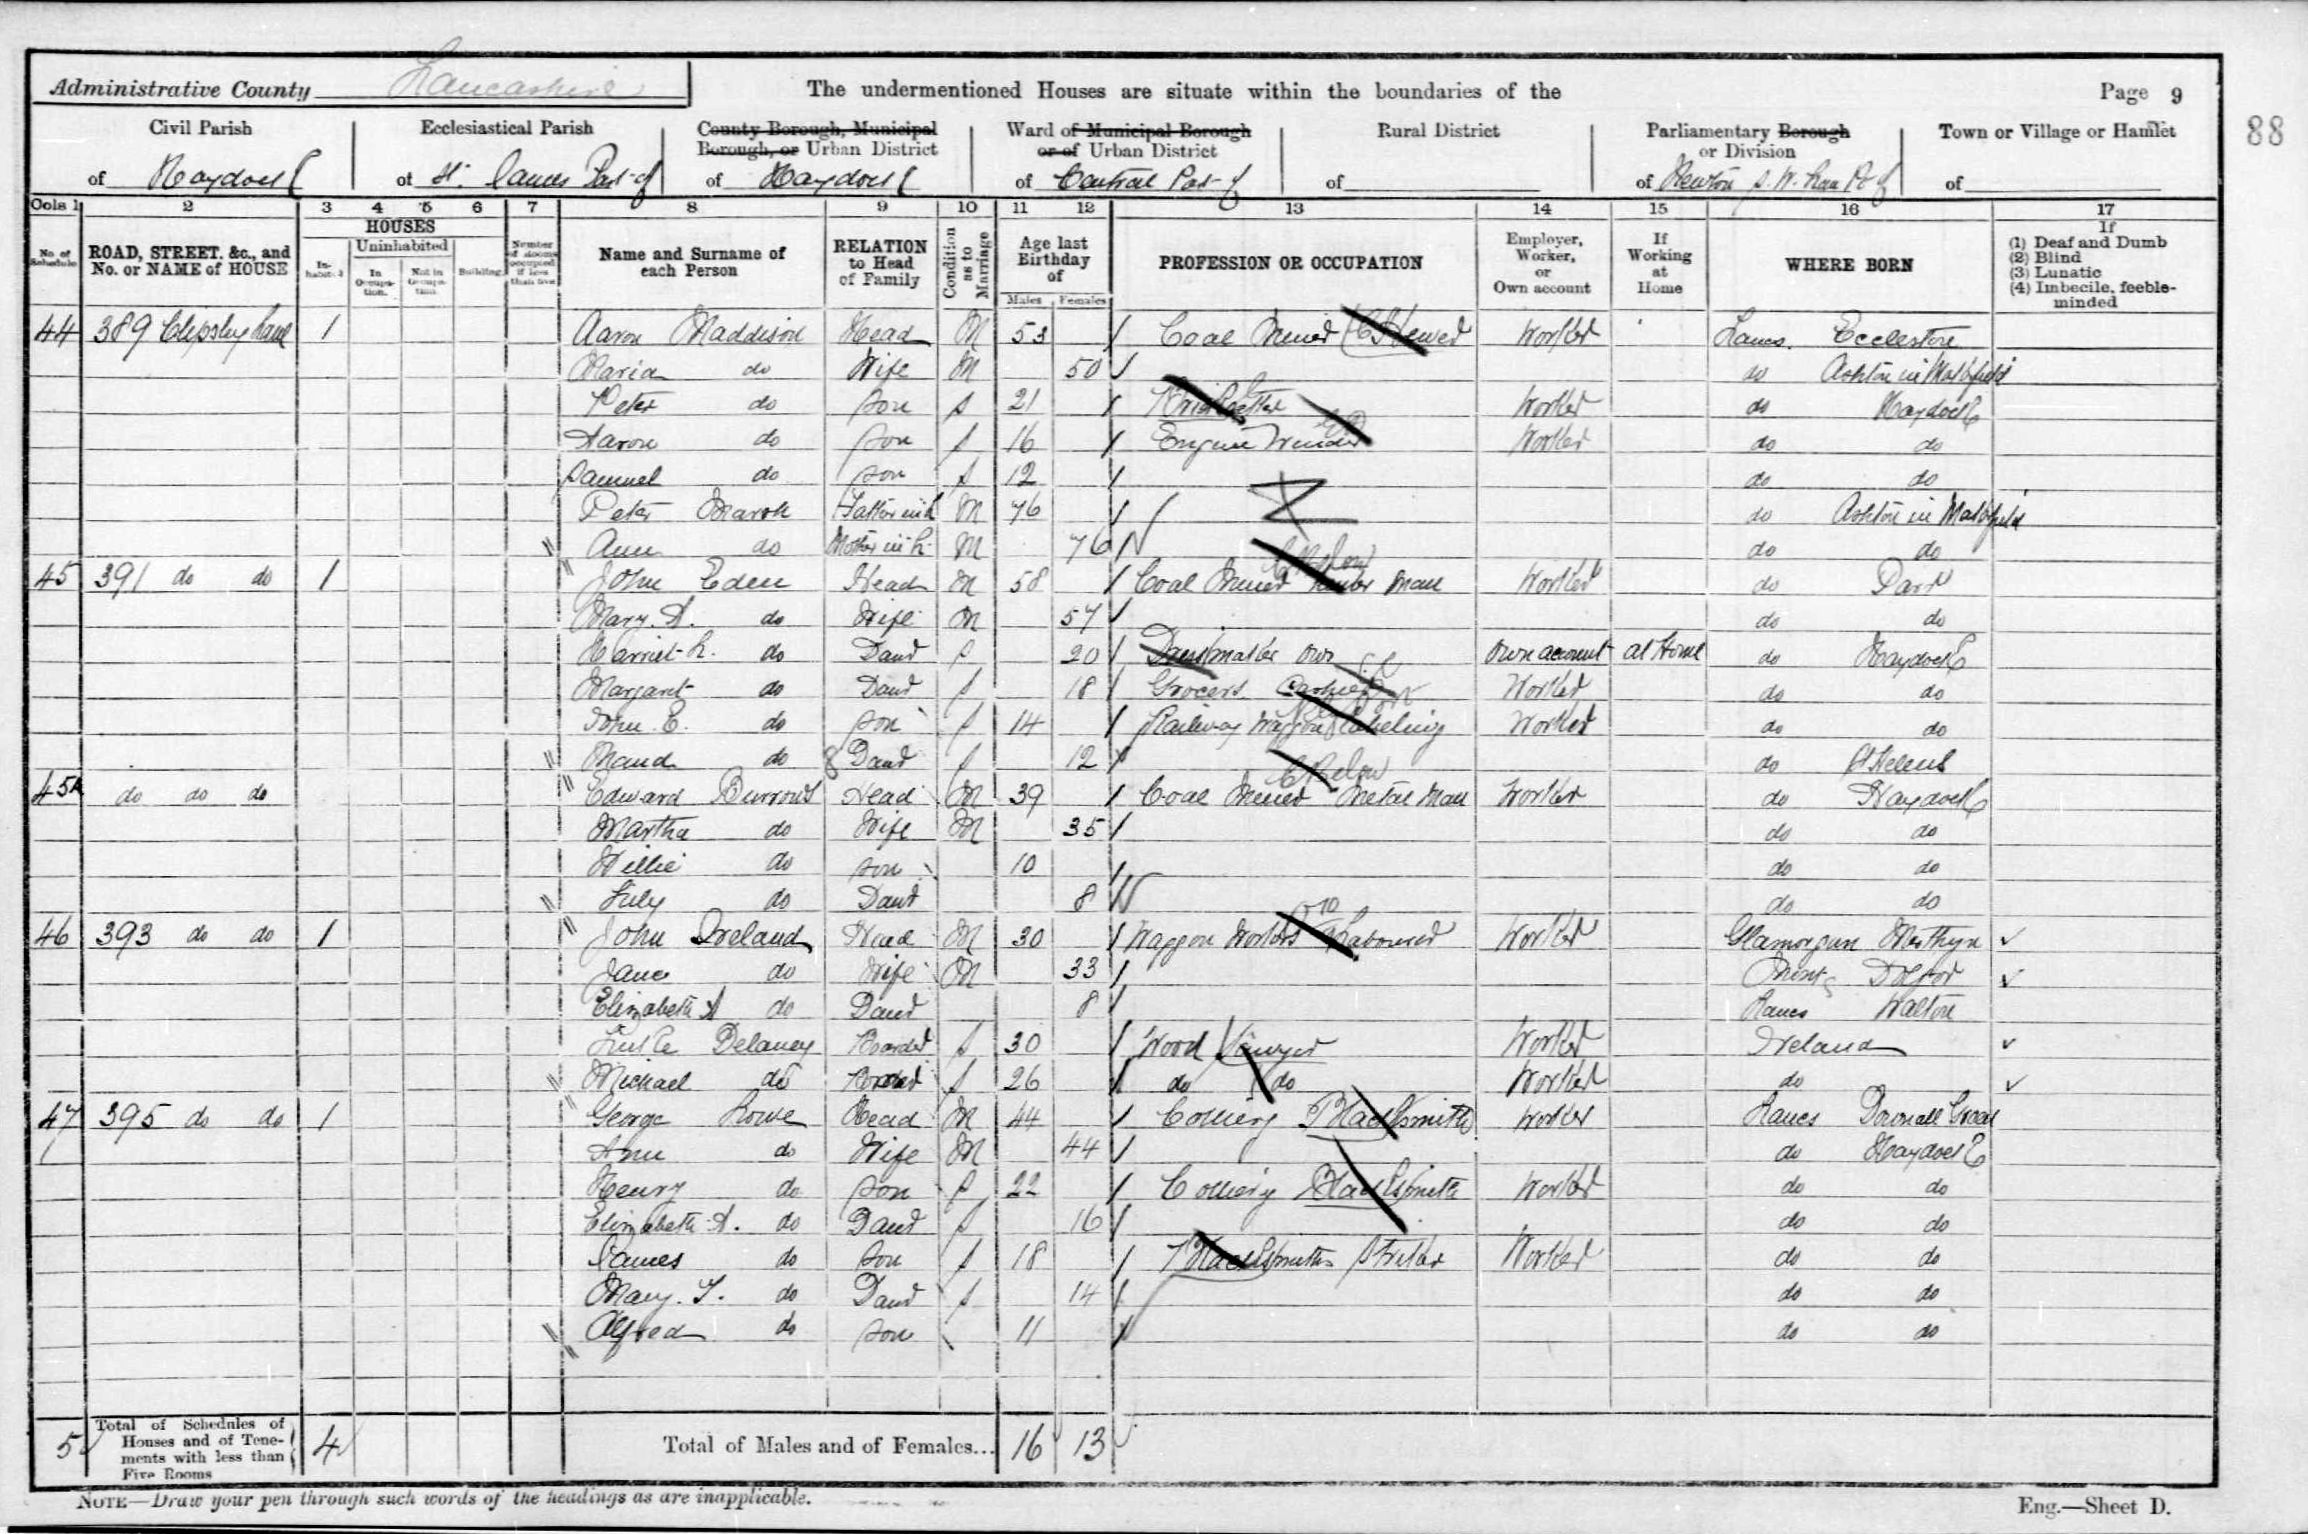 Administrative County Lancashire
The undermentioned Houses are situate within the boundaries of the
Page 9
88
Civil Parish of Haydock
Ecclesiastical Parish of St. James Part of
County Borough, Municipal Borough, or Urban District of Haydock
Ward of Municipal Borough or of Urban District of Central Part of
Rural District of
Parliamentary Borough or Division of Newton S. W. Lan Pt of
Town or Village or Hamlet of
Cols 1 2 3 4 5 6 7 8 9 10 11 12 13 14 15 16 17
No. of Schedule
ROAD, STREET, &c., and No. or NAME of HOUSE
HOUSES
Inhabited
Uninhabited
In Occupation.
Not in Occupation.
Building.
Number of Rooms occupied if less than five
Name and Surname of each Person
RELATION to Head of Family
Condition as to Marriage
Age last Birthday of
Males Females
PROFESSION OR OCCUPATION
Employer, Worker, or Own account
If Working at Home
WHERE BORN
If
(1) Deaf and Dumb
(2) Blind
(3) Lunatic
(4) Imbecile, feeble-minded
44 389 Clipsley Lane 1 Aaron Maddison Head M 53 Coal Miner Hewer Worker Lancs. Eccleston
Maria do Wife M 50 do Ashton in Makerfield
Peter do Son S 21 Bricksetter Worker do Haydock
Aaron do Son S 16 Engine Winder Worker do do
Samuel do Son S 12 do do
Peter Marsh Father in L M 76 do Ashton in Makerfield
Ann do Mother in L. M 76 do do
45 391 do do 1 John Eden Head M 58 Coal Miner Below man Worker do Parr
Mary. A. do Wife M 57 do do
Harriet L. do Daur S 20 Dressmaker own Own account at Home do Haydock
Margaret do Daur S 18 Grocers Cashier Worker do do
John. E. do Son S 14 Railway Waggon Labeling Worker do do
Maud do Daur S 12 do St Helens
45A do do do Edward Burrows Head M 39 Coal Miner Metal Man Below Worker do Haydock
Martha do Wife M 35 do do
Willie do Son 10 do do
Lily do Daur 8 do do
46 393 do do 1 John Ireland Head M 30 Waggon Works Labourer Worker Glamorgan Merthyr
Jane do Wife M 33
Elizabeth A do Daur 8 Lancs Walton
Delaney Boarder S 30 Wood Sawyer Worker Ireland
Michael do Boarder S 26 do do Worker do
47 395 do do 1 George Lowe Head M 44 Colliery Blacksmith Worker Lancs Downall Green
Ann do Wife M 44 do Haydock
Henry do Son S 22 Colliery Blacksmith Worker do do
Elizabeth A. do Daur S 16 do do
James do Son S 18 Blacksmiths Striker Worker do do
Mary. J. do Daur S 14 do do
Alfred do Son 11 do do
5 Total of Schedules of Houses and of Tenements with less than Five Rooms 4 Total of Males and of Females... 16 13
NOTE—Draw your pen through such words of the headings as are inapplicable.
Eng.—Sheet D.